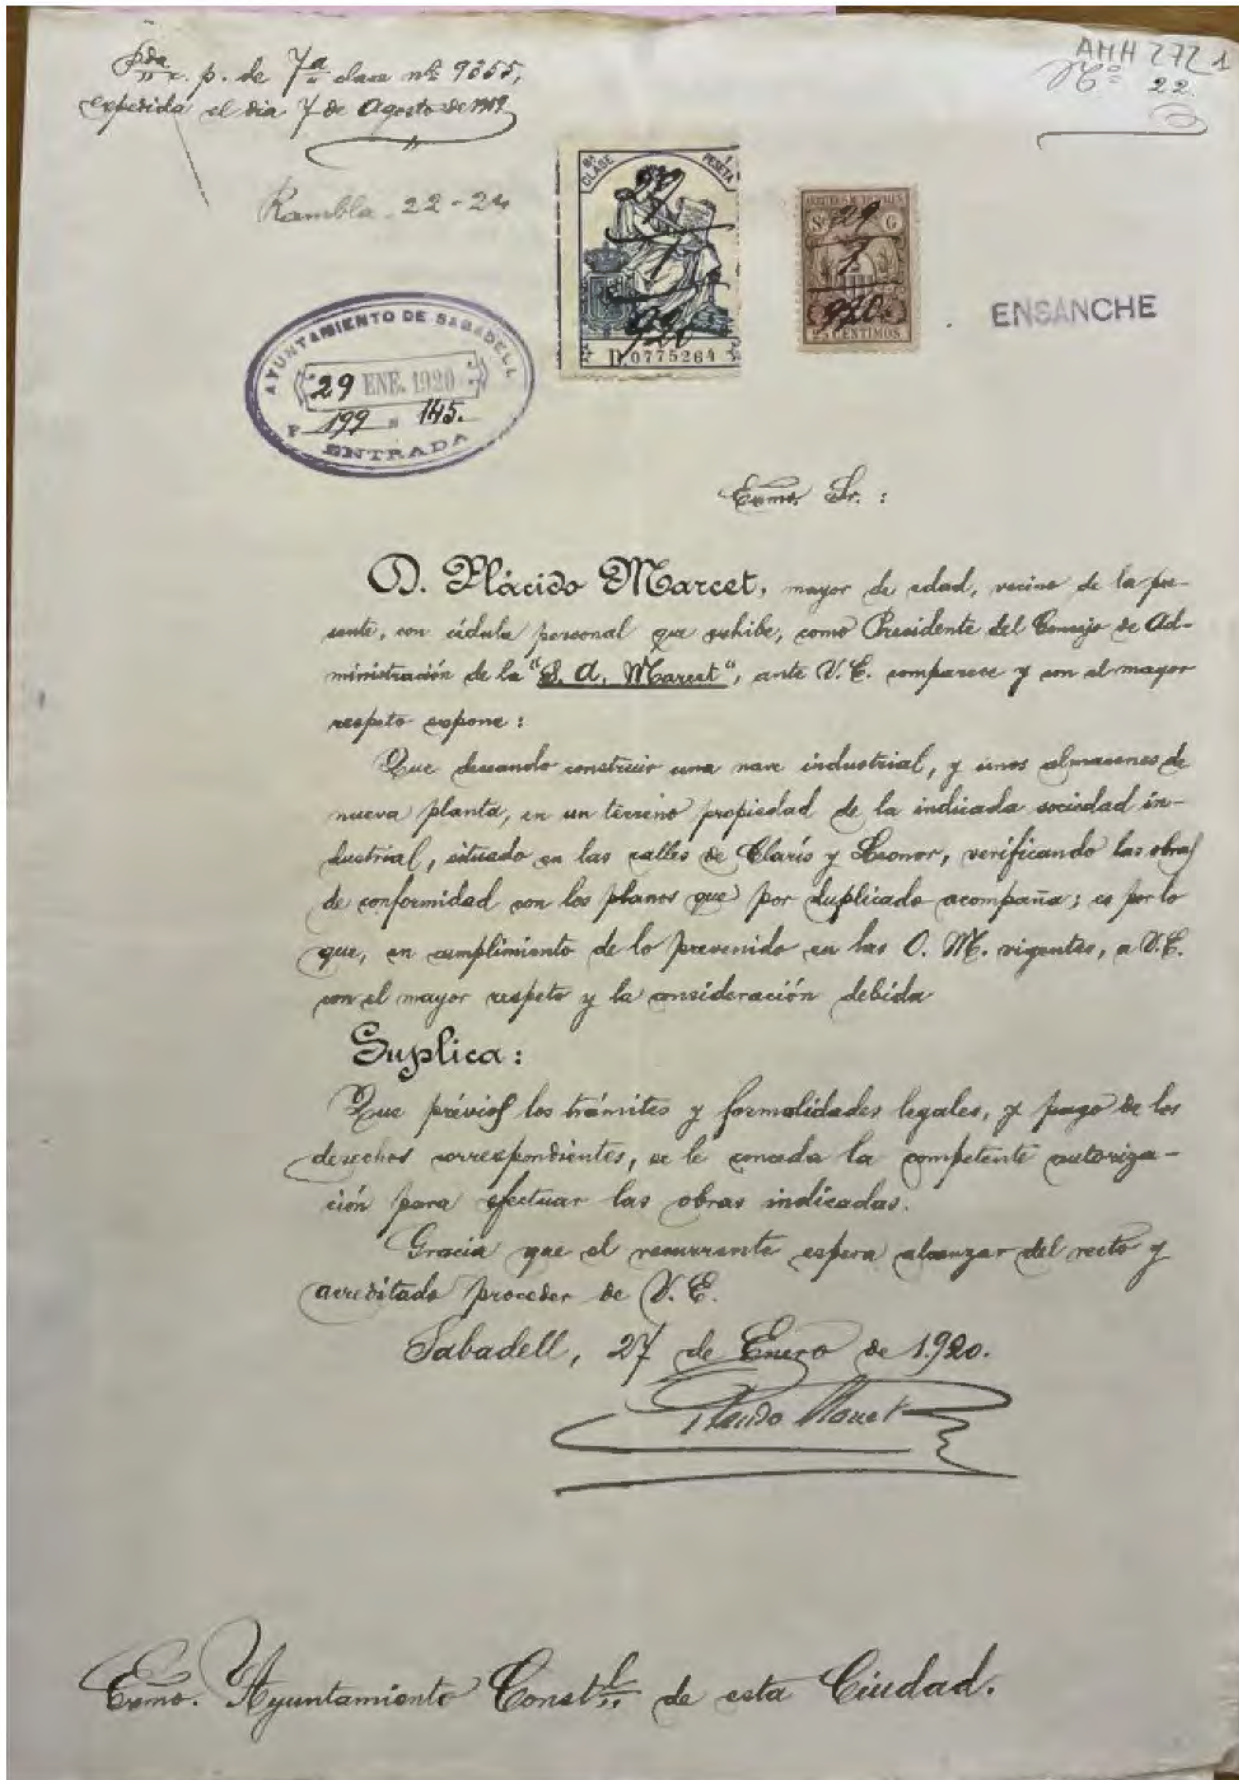 p. de 7ª clase nº 9355,
expedida el dia 7 de Agosto de 1919
AMH 272 1
Nº 22.
Rambla 22-24
8ª CLASE
1 PESETA
29
1
920
D.0775264
S G
29
920
25 CENTIMOS
ENSANCHE
AYUNTAMIENTO DE SABADELL
29 ENE. 1920
F 199 n 145.
ENTRADA
Exmo. Sr. :
D. Plácido Marcet, mayor de edad, vecino de la pre-
sente, con cédula personal que exhibe, como Presidente del Consejo de Ad-
ministración de la "S. A. Marcet", ante V. E. comparece y con el mayor
respeto expone :
Que deseando construir una nave industrial, y unos almacenes de
nueva planta, en un terreno propiedad de la indicada sociedad in-
dustrial, situado en las calles de Claris y Leonor, verificando las obras
de conformidad con los planos que por duplicado acompaña; es por lo
que, en cumplimiento de lo prevenido en las O. M. vigentes, a V. E.
con el mayor respeto y la consideración debida
Suplica :
Que prévios los trámites y formalidades legales, y pago de los
derechos correspondientes, se le conceda la competente autoriza-
ción para efectuar las obras indicadas.
Gracia que el recurrente espera alcanzar del recto y
acreditado proceder de V. E.
Sabadell, 27 de Enero de 1.920.
Plácido Marcet
Exmo. Ayuntamiento Constl. de esta Ciudad.